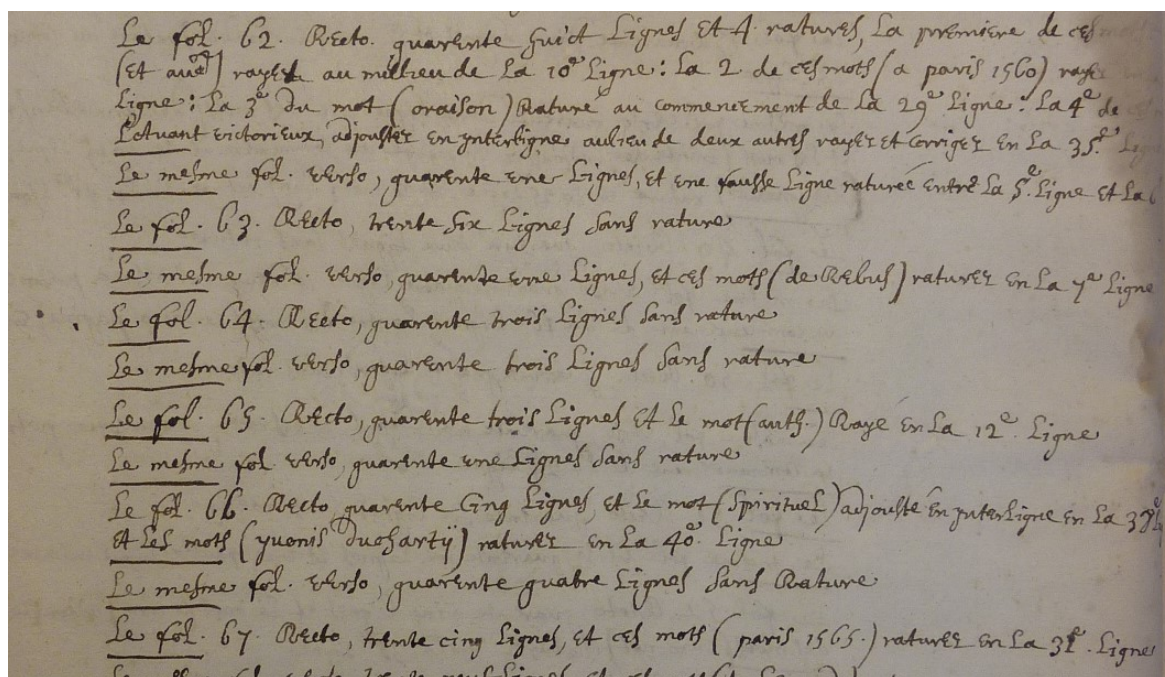 Le fol. 62. Recto. quarente huict Lignes Et 4. ratures, La premiere de ces mots
(Et aued) rayez au millieu de La 10e Ligne: La 2. de ces mots (a paris 1560) rayez
Ligne: La 3e du mot (oraison) Rature au commencement de La 29e Ligne: La 4e de
victorieux, adjoustez en jnterligne aulieu de deux autres rayez et corrigez En La 35e Ligne
Le mesme fol. verso, quarente vne Lignes, et vne fausse Ligne raturee entre La 5e Ligne et La 6
Le fol. 63. Recto, trente six Lignes sans rature
Le mesme fol. verso, quarente vne Lignes, et ces mots (de Rebus) raturez en La 7e Ligne
Le fol. 64. Recto, quarente trois Lignes sans rature
Le mesme fol. verso, quarente trois Lignes sans rature
Le fol. 65. Recto, quarente trois Lignes et Le mot (auth.) Rayé en La 12e. Ligne
Le mesme fol. verso, quarente vne Lignes sans rature
Le fol. 66. Recto, quarente Cinq Lignes, et Le mot (spirituel) adjousté en jnterligne en La
Et Les mots (yuonis Duchartij) raturez en La 40e. Ligne
Le mesme fol. verso, quarente quatre Lignes sans Rature
Le fol. 67. Recto, trente cinq Lignes, et ces mots (paris 1565.) raturez en La 31e. Ligne